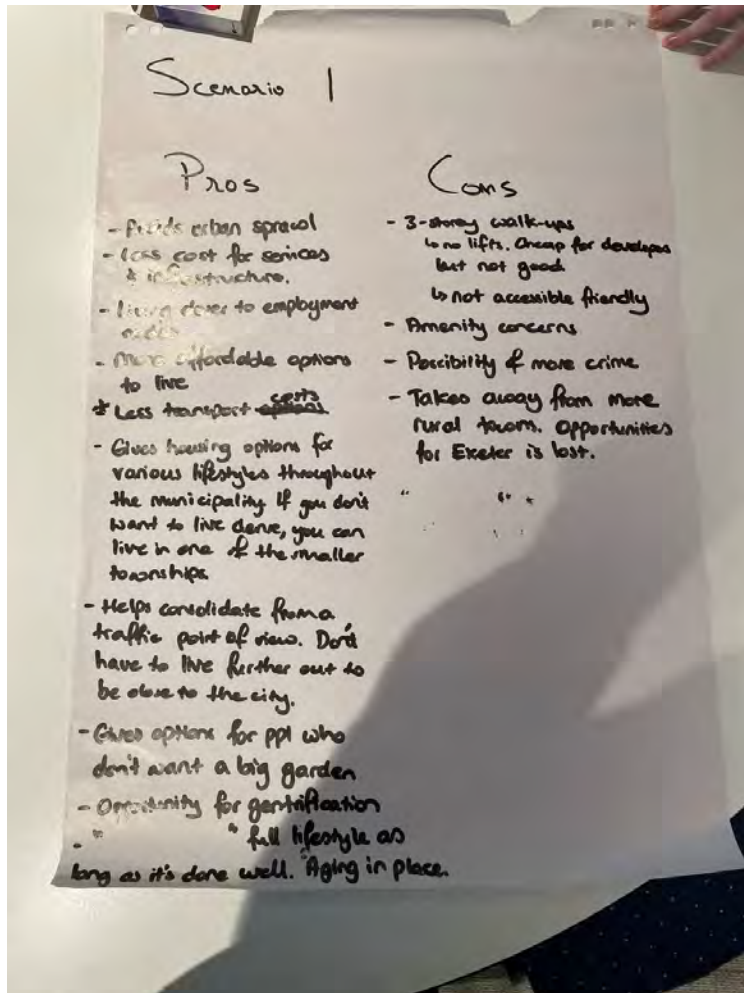 Scenario 1
Pros
- Avoids urban sprawl
- Less cost for services
& infrastructure.
- Living closer to employment
- More affordable options
to live
* Less transport costs
- Gives housing options for
various lifestyles throughout
the municipality If you don't
want to live dense, you can
live in one of the smaller
townships
- Helps consolidate from a
traffic point of view. Don't
have to live further out to
be close to the city.
- Gives options for ppl who
don't want a big garden
- Opportunity for gentrification
- " " full lifestyle as
long as it's done well. "Aging in place.
Cons
- 3-storey walk-ups
↳ no lifts. Cheap for developers
but not good
↳ not accessible friendly
- Amenity concerns
- Possibility of more crime
- Takes away from more
rural towns. Opportunities
for Exeter is lost.